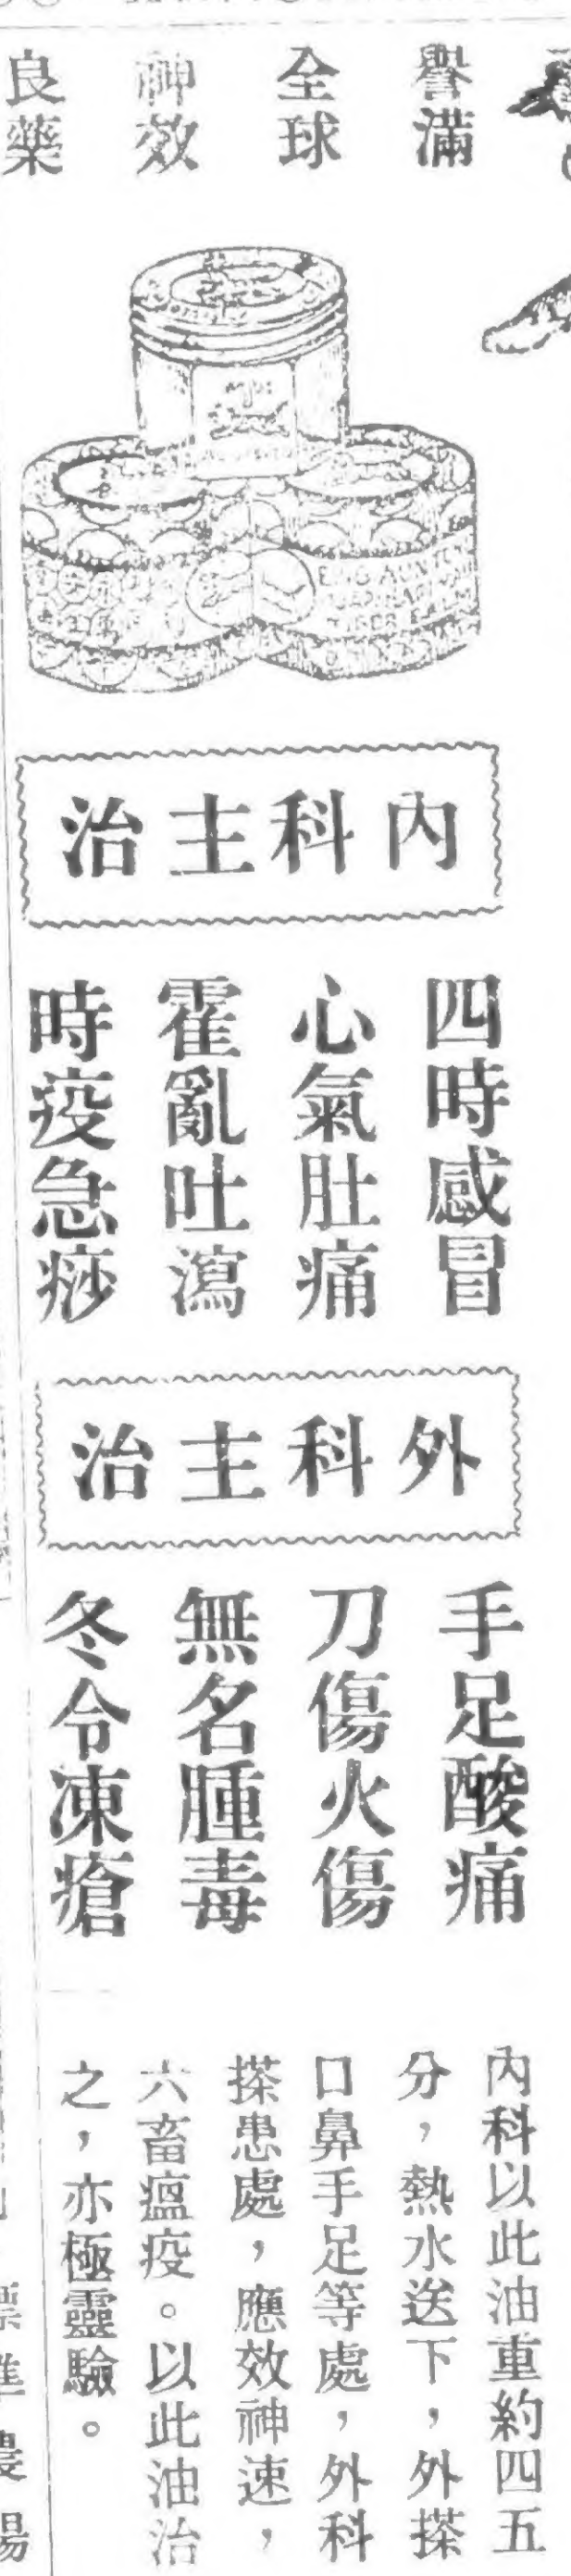 譽滿
全球
神效
良藥
ENG AUN TONG
TIGER BALM
內科主治
四時感冒
心氣肚痛
霍亂吐瀉
時疫急痧
外科主治
手足酸痛
刀傷火傷
無名腫毒
冬令凍瘡
內科以此油重約四五
分，熱水送下，外搽
口鼻手足等處，外科
搽患處，應效神速，
六畜瘟疫。以此油治
之，亦極靈驗。